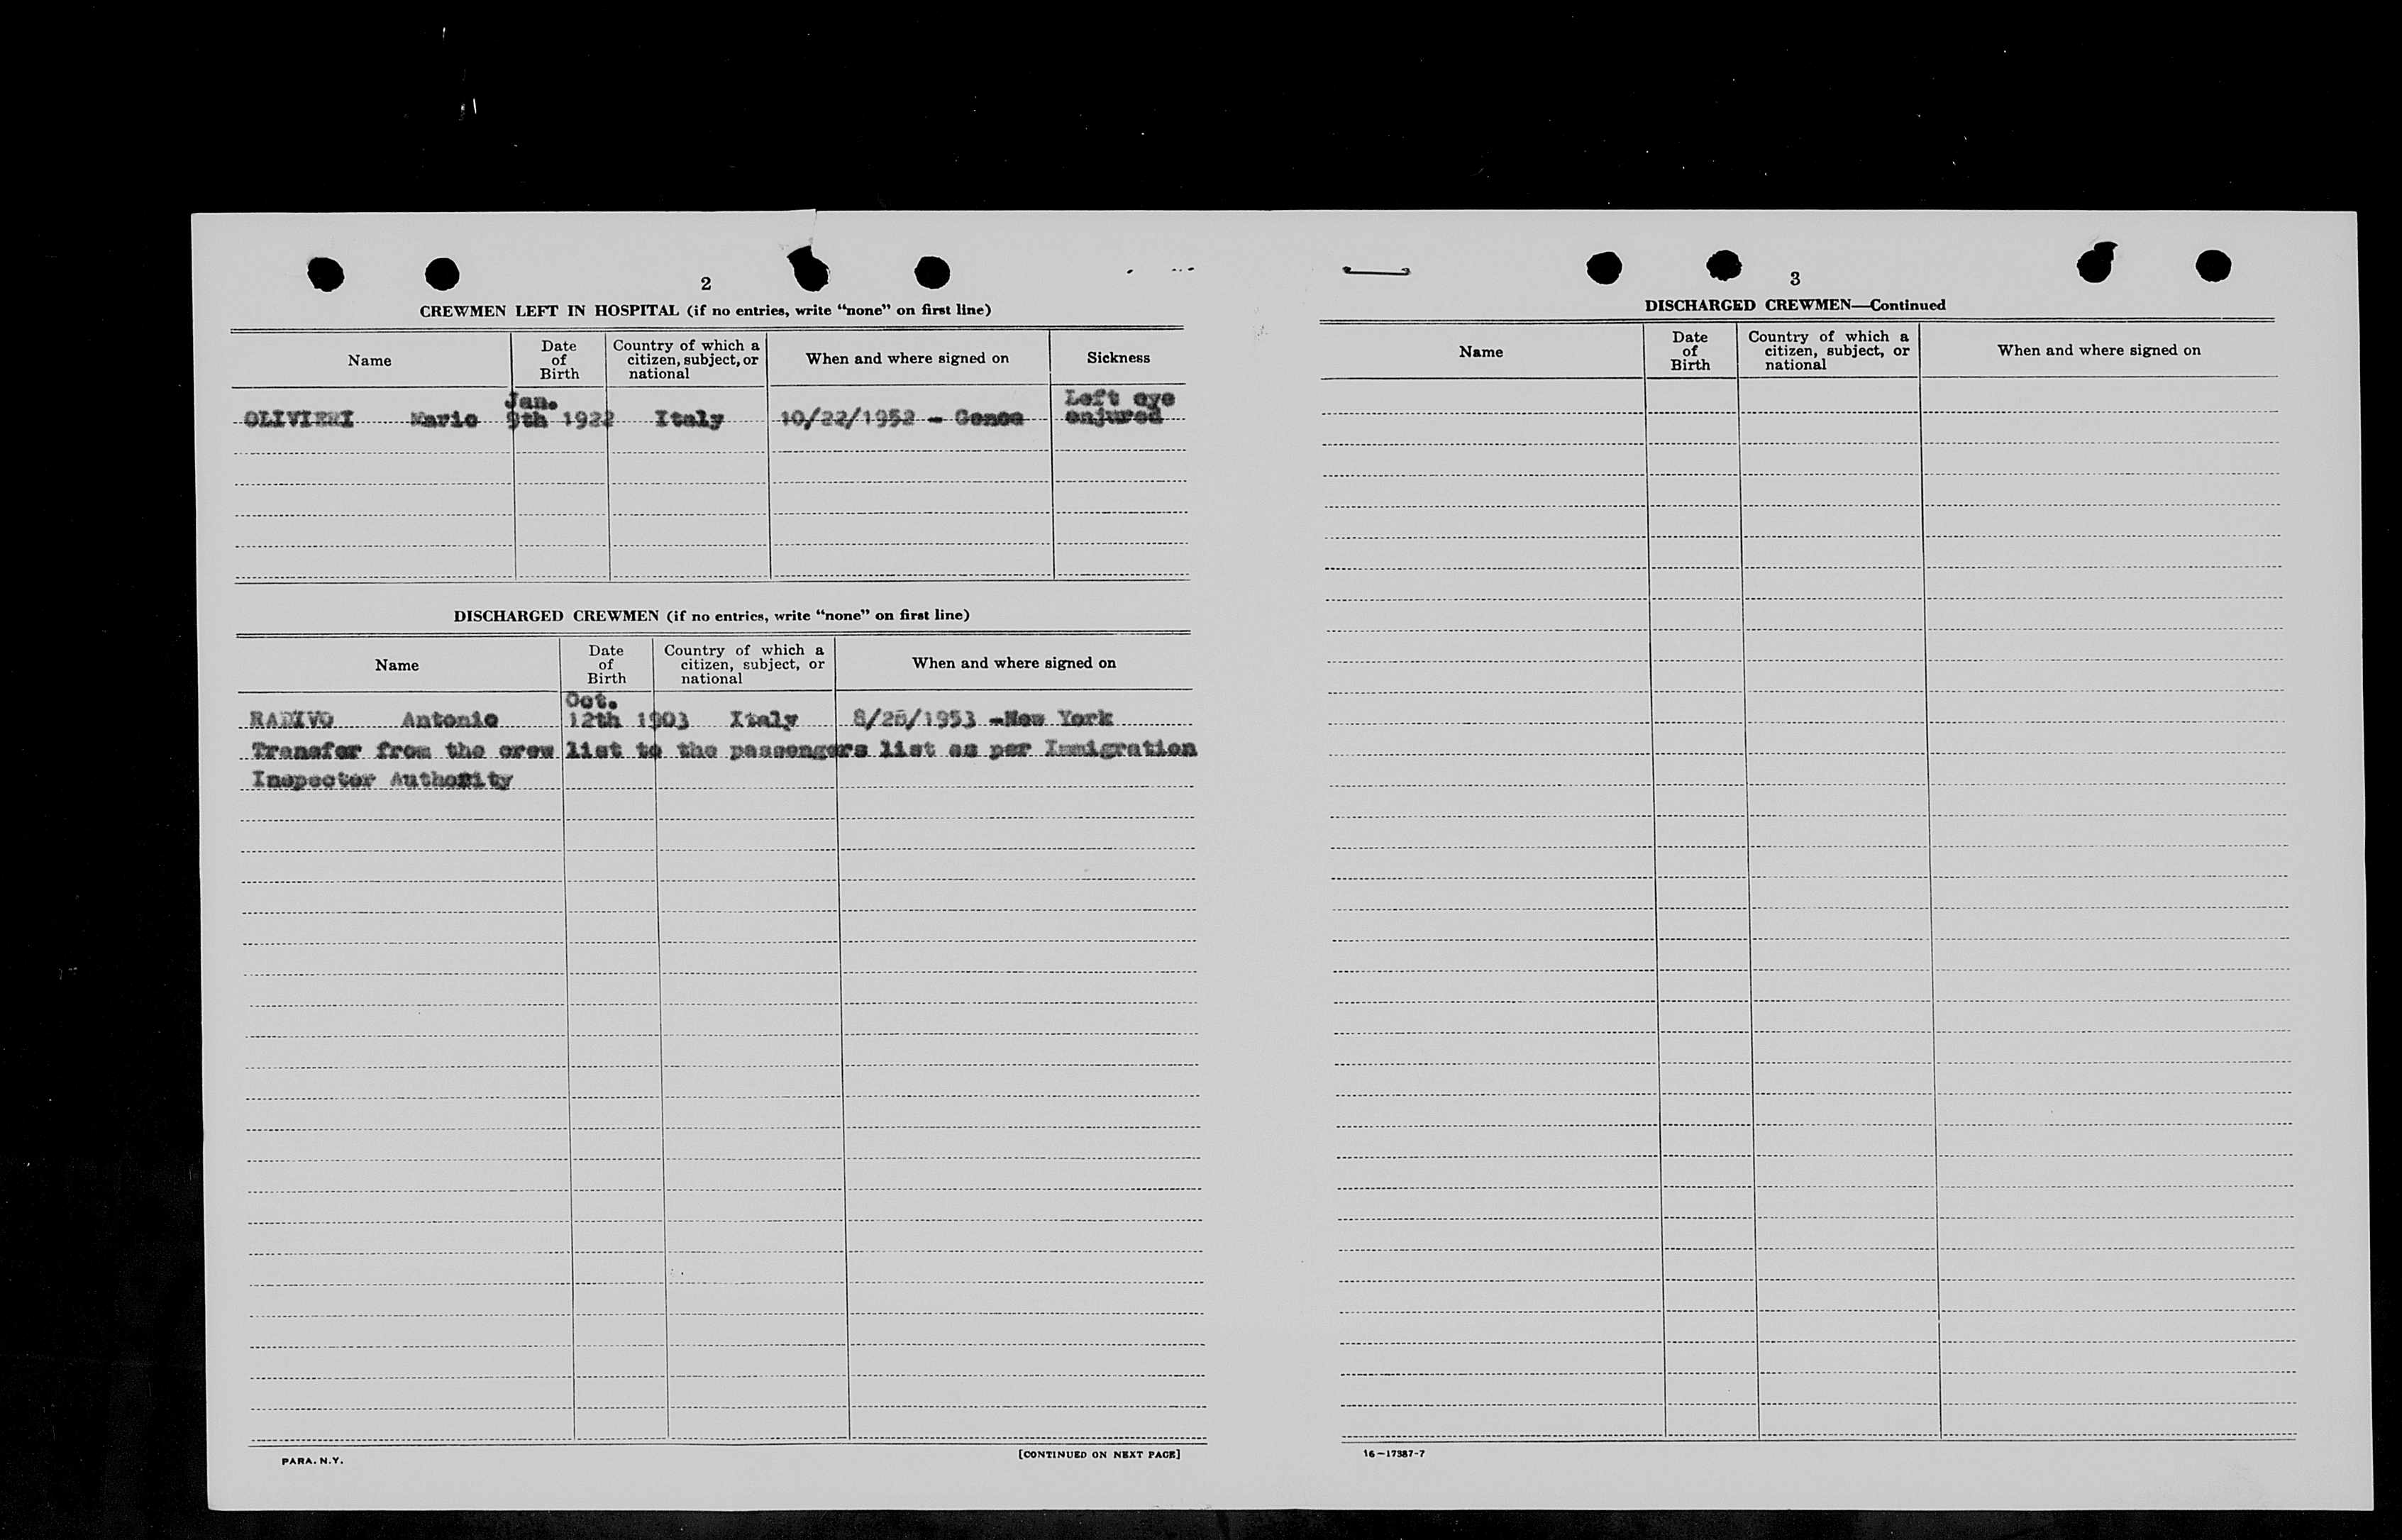 2
CREWMEN LEFT IN HOSPITAL (if no entries, write “none” on first line)
Name
Date of Birth
Country of which a citizen, subject, or national
When and where signed on
Sickness
OLIVIERI Mario Jan. 9th 1922 Italy 10/22/1952 - Genoa Left eye enjured
DISCHARGED CREWMEN (if no entries, write “none” on first line)
Name
Date of Birth
Country of which a citizen, subject, or national
When and where signed on
Antonio Oct. 12th 1903 Italy 8/28/1953 -New York
Transfer from the crew list to the passengers list as per Immigration
Inspector Authority
PARA. N.Y.
[CONTINUED ON NEXT PAGE]
3
DISCHARGED CREWMEN—Continued
Name
Date of Birth
Country of which a citizen, subject, or national
When and where signed on
16—17387-7